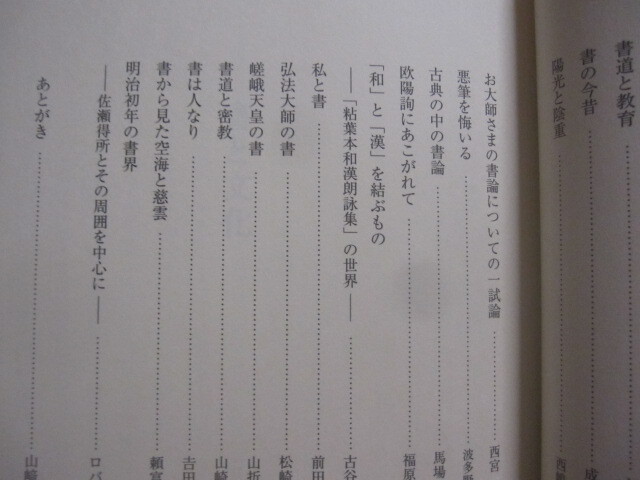 書道と教育
書の今昔
陽光と陰重
お大師さまの書論についての一試論 西宮
悪筆を悔いる 波多野
古典の中の書論 馬場
欧陽詢にあこがれて 福原
「和」と「漢」を結ぶもの
―「粘葉本和漢朗詠集」の世界― 古谷
私と書 前田
弘法大師の書 松崎
嵯峨天皇の書 山折
書道と密教 山崎
書は人なり 吉田
書から見た空海と慈雲 頼富
明治初年の書界
―佐瀬得所とその周囲を中心に― ロバ
あとがき 山崎